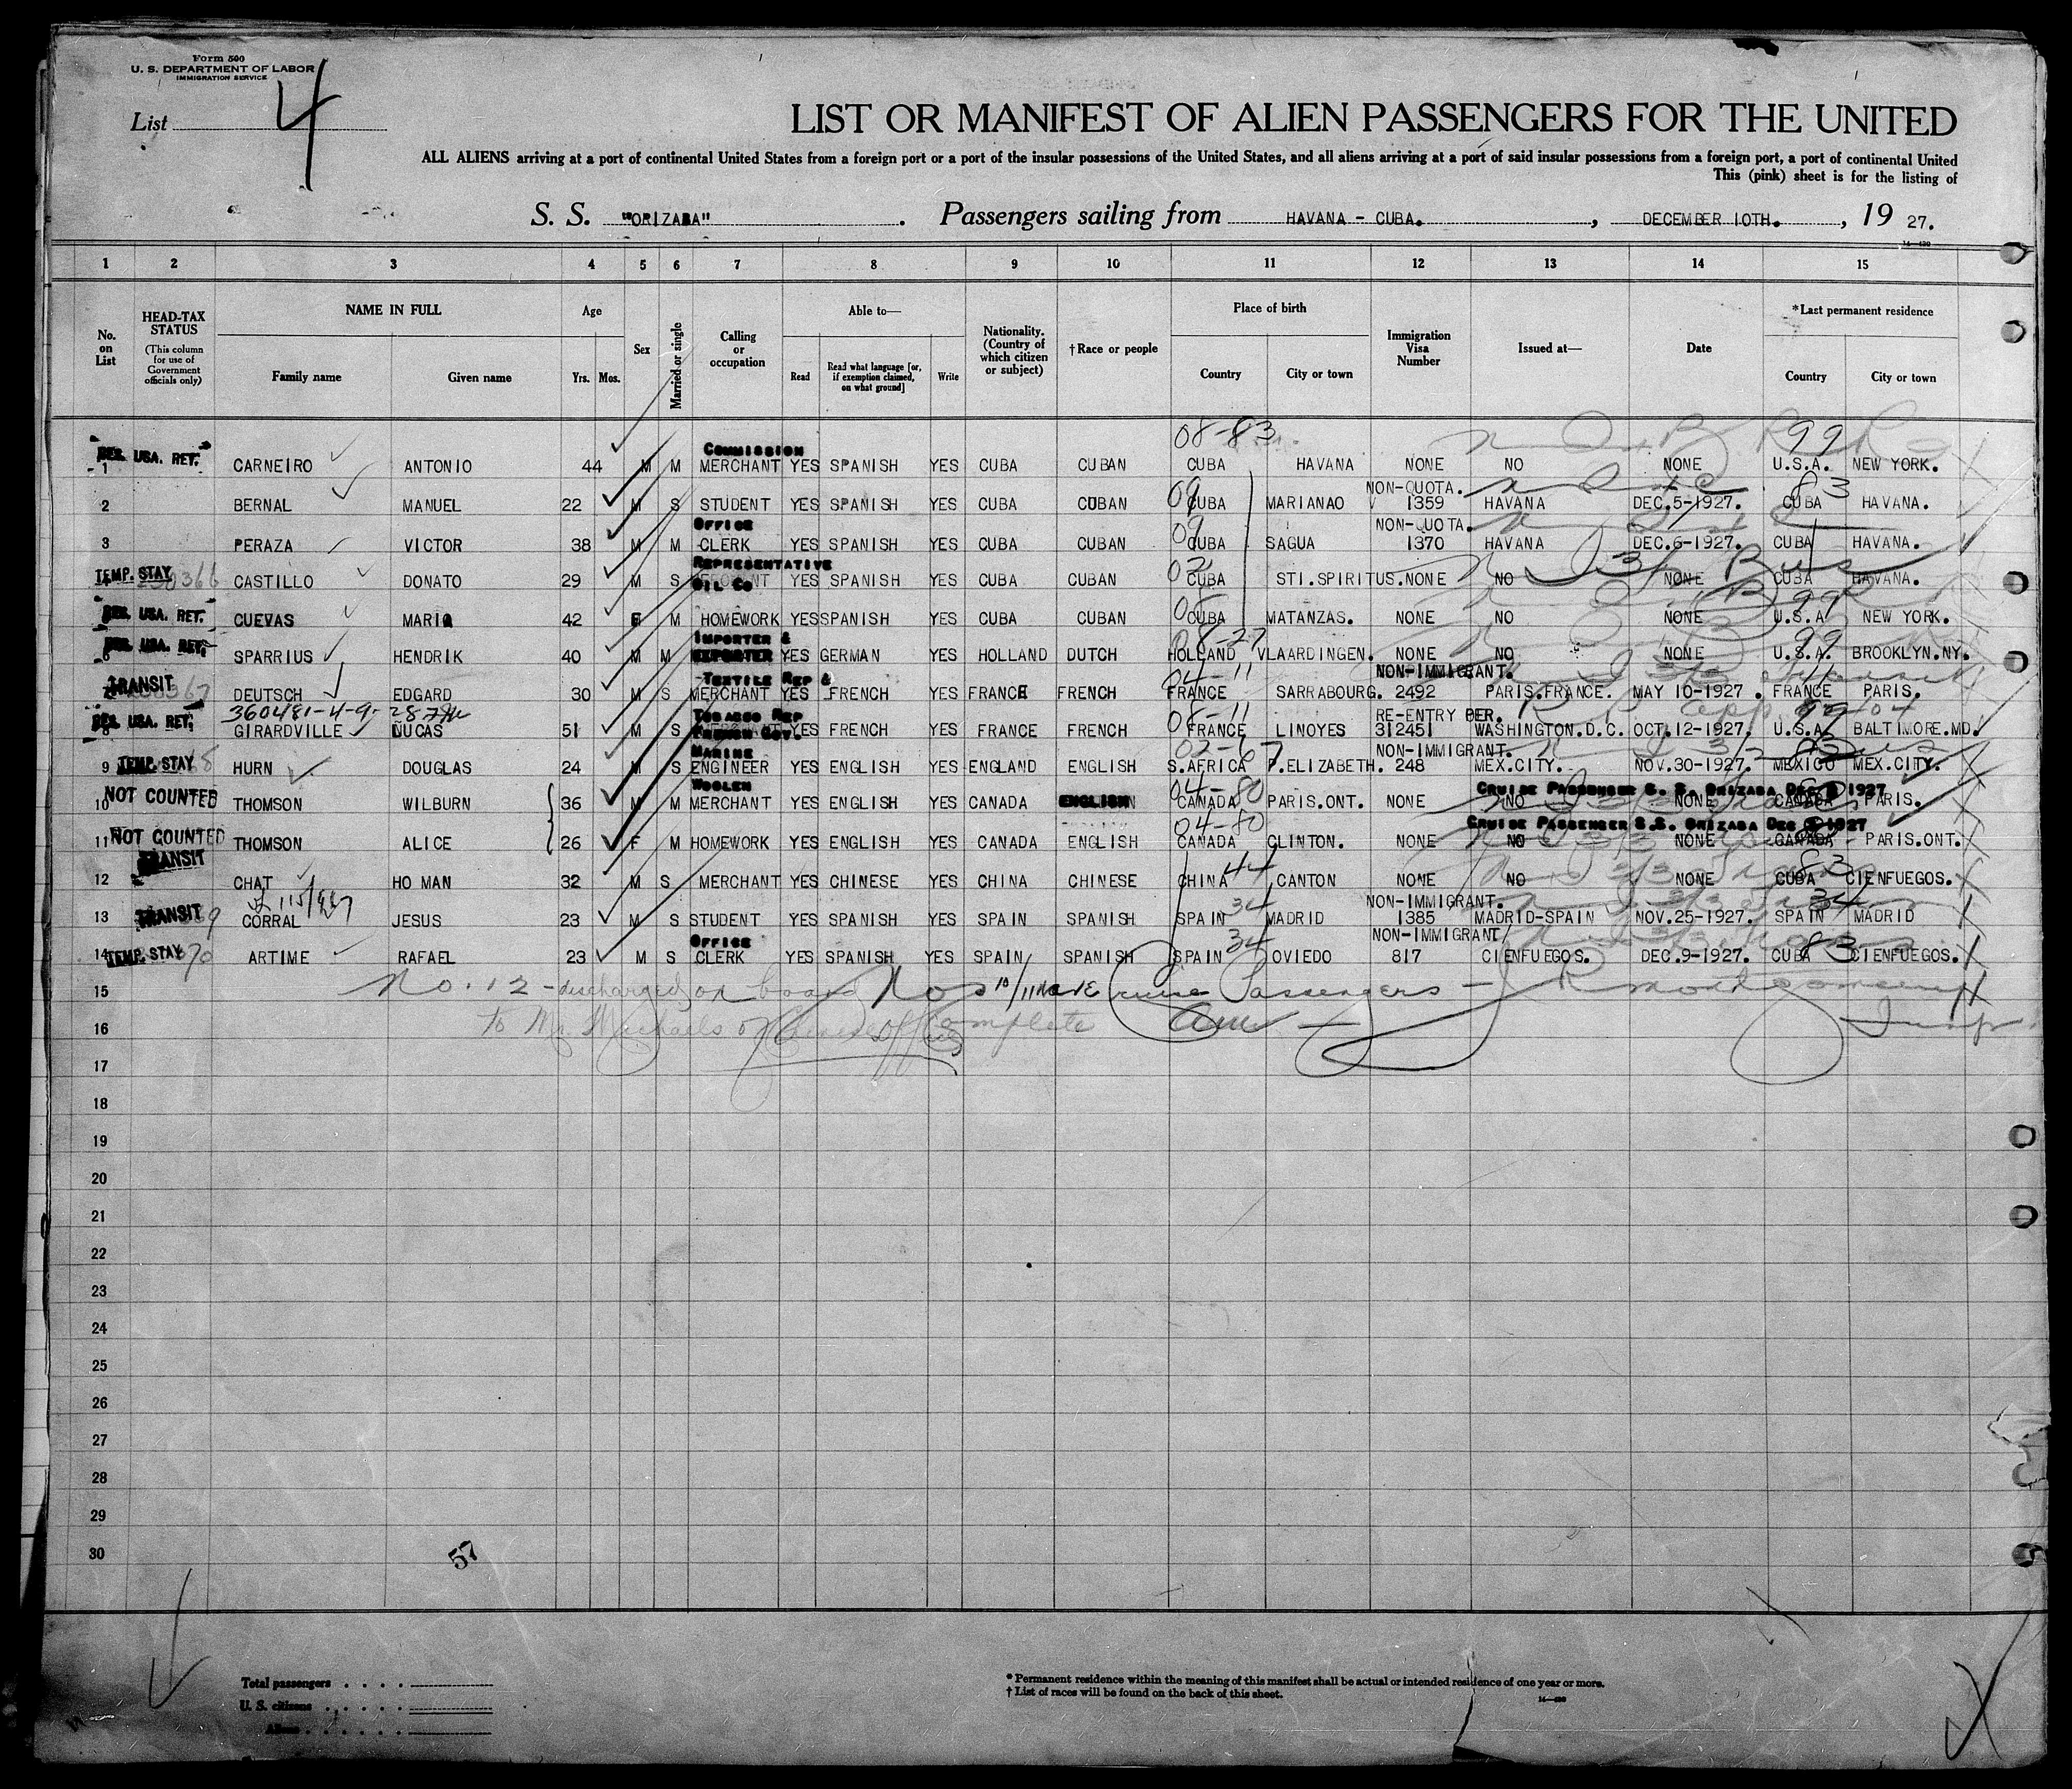 Form 500
U. S. DEPARTMENT OF LABOR
IMMIGRATION SERVICE
List 4
LIST OR MANIFEST OF ALIEN PASSENGERS FOR THE UNITED
ALL ALIENS arriving at a port of continental United States from a foreign port or a port of the insular possessions of the United States, and all aliens arriving at a port of said insular possessions from a foreign port, a port of continental United
This (pink) sheet is for the listing of
S. S. "ORIZABA". Passengers sailing from HAVANA - CUBA., DECEMBER 10TH., 19 27.
1 2 3 4 5 6 7 8 9 10 11 12 13 14 15
No. on List
HEAD-TAX STATUS
(This column for use of Government officials only)
NAME IN FULL
Family name Given name
Age
Yrs. Mos.
Sex
Married or single
Calling or occupation
Able to—
Read Read what language [or, if exemption claimed, on what ground] Write
Nationality. (Country of which citizen or subject)
†Race or people
Place of birth
Country City or town
Immigration Visa Number
Issued at—
Date
*Last permanent residence
Country City or town
08-83 99
COMMISSION
USA. RET. 1 CARNEIRO ANTONIO 44 M M MERCHANT YES SPANISH YES CUBA CUBAN CUBA HAVANA NONE NO NONE U.S.A. NEW YORK.
NON-QUOTA.
2 BERNAL MANUEL 22 M S STUDENT YES SPANISH YES CUBA CUBAN CUBA MARIANAO 1359 HAVANA DEC.5-1927. CUBA 83 HAVANA.
OFFICE NON-QUOTA.
3 PERAZA VICTOR 38 M M CLERK YES SPANISH YES CUBA CUBAN CUBA SAGUA 1370 HAVANA DEC.6-1927. CUBA HAVANA.
REPRESENTATIVE
TEMP. STAY CASTILLO DONATO 29 M S OIL CO YES SPANISH YES CUBA CUBAN CUBA STI.SPIRITUS. NONE NO NONE CUBA HAVANA.
USA. RET. CUEVAS MARIA 42 F M HOMEWORK YES SPANISH YES CUBA CUBAN CUBA MATANZAS. NONE NO NONE U.S.A NEW YORK.
IMPORTER & 08-27 99
USA. RET. 6 SPARRIUS HENDRIK 40 M M EXPORTER YES GERMAN YES HOLLAND DUTCH HOLLAND VLAARDINGEN. NONE NO NONE U.S.A. BROOKLYN.NY.
TEXTILE REP & 04-11 NON-IMMIGRANT. 11
TRANSIT DEUTSCH EDGARD 30 M S MERCHANT YES FRENCH YES FRANCE FRENCH FRANCE SARRABOURG. 2492 PARIS.FRANCE. MAY 10-1927. FRANCE PARIS.
360481-4-9-28 TOBACCO REP 08-11 RE-ENTRY PER. 99
USA. RET. 8 GIRARDVILLE LUCAS 51 M S FRENCH GOV. YES FRENCH YES FRANCE FRENCH FRANCE LINOYES 312451 WASHINGTON.D.C. OCT.12-1927. U.S.A BALTIMORE.MD.
MARINE 02-67 NON-IMMIGRANT.
9 TEMP. STAY HURN DOUGLAS 24 M S ENGINEER YES ENGLISH YES ENGLAND ENGLISH S.AFRICA P.ELIZABETH. 248 MEX.CITY. NOV.30-1927. MEXICO MEX.CITY.
WOOLEN 04-80 CRUISE PASSENGER S. S. ORIZABA DEC 1927
10 NOT COUNTED THOMSON WILBURN 36 M M MERCHANT YES ENGLISH YES CANADA ENGLISH CANADA PARIS.ONT. NONE NO NONE CANADA PARIS.
04-80 CRUISE PASSENGER S.S. ORIZABA DEC 1927
11 NOT COUNTED THOMSON ALICE 26 F M HOMEWORK YES ENGLISH YES CANADA ENGLISH CANADA CLINTON. NONE NO NONE CANADA PARIS.ONT.
TRANSIT 44 83
12 CHAT HO MAN 32 M S MERCHANT YES CHINESE YES CHINA CHINESE CHINA CANTON NONE NO NONE CUBA CIENFUEGOS.
34 NON-IMMIGRANT. 34
13 TRANSIT CORRAL JESUS 23 M S STUDENT YES SPANISH YES SPAIN SPANISH SPAIN MADRID 1385 MADRID-SPAIN NOV.25-1927. SPAIN MADRID
OFFICE 34 NON-IMMIGRANT 83
14 TEMP. STAY ARTIME RAFAEL 23 M S CLERK YES SPANISH YES SPAIN SPANISH SPAIN OVIEDO 817 CIENFUEGOS. DEC.9-1927. CUBA CIENFUEGOS.
15 No. 12 - discharged on board Nos 10/11 are Cruise Passengers - R Montgomery
16 to Mr. Michaels of Chinese office Complete Insp.
17
18
19
20
21
22
23
24
25
26
27
28
29
30
57
Total passengers
U. S. citizens
Aliens
* Permanent residence within the meaning of this manifest shall be actual or intended residence of one year or more.
† List of races will be found on the back of this sheet.